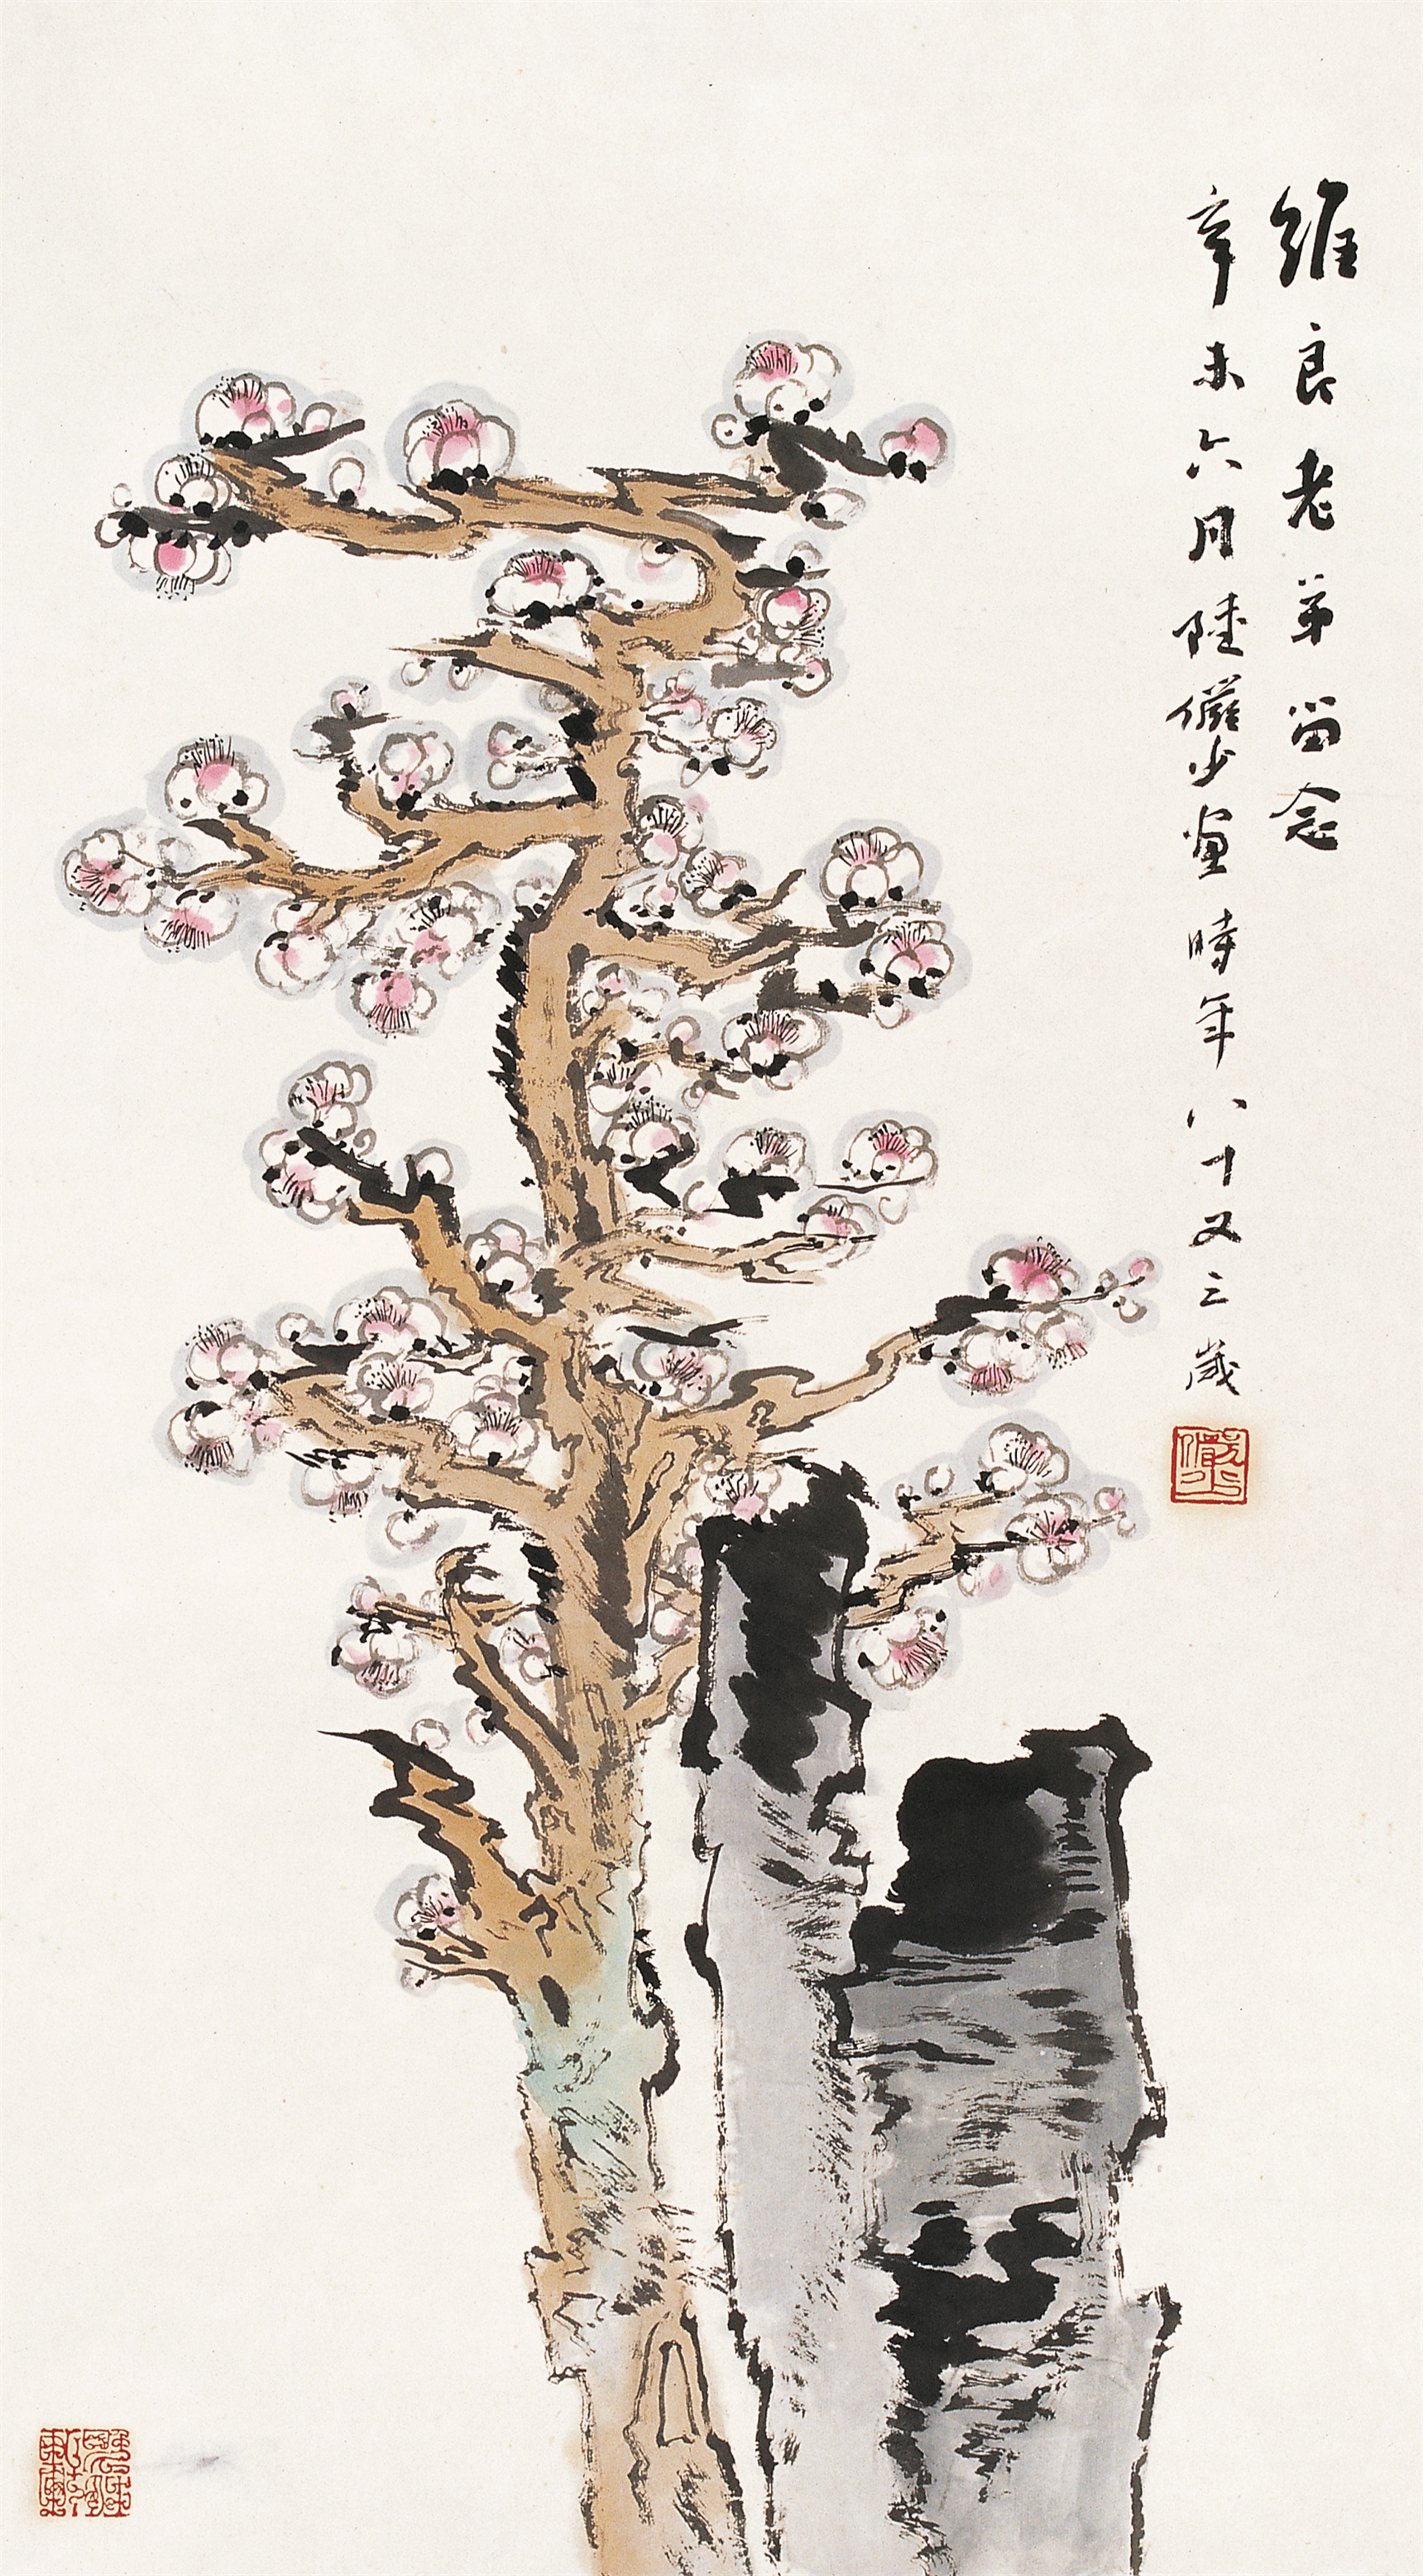 維良老弟留念
辛未六月陸儼少畫時年八十又三歲
儼少